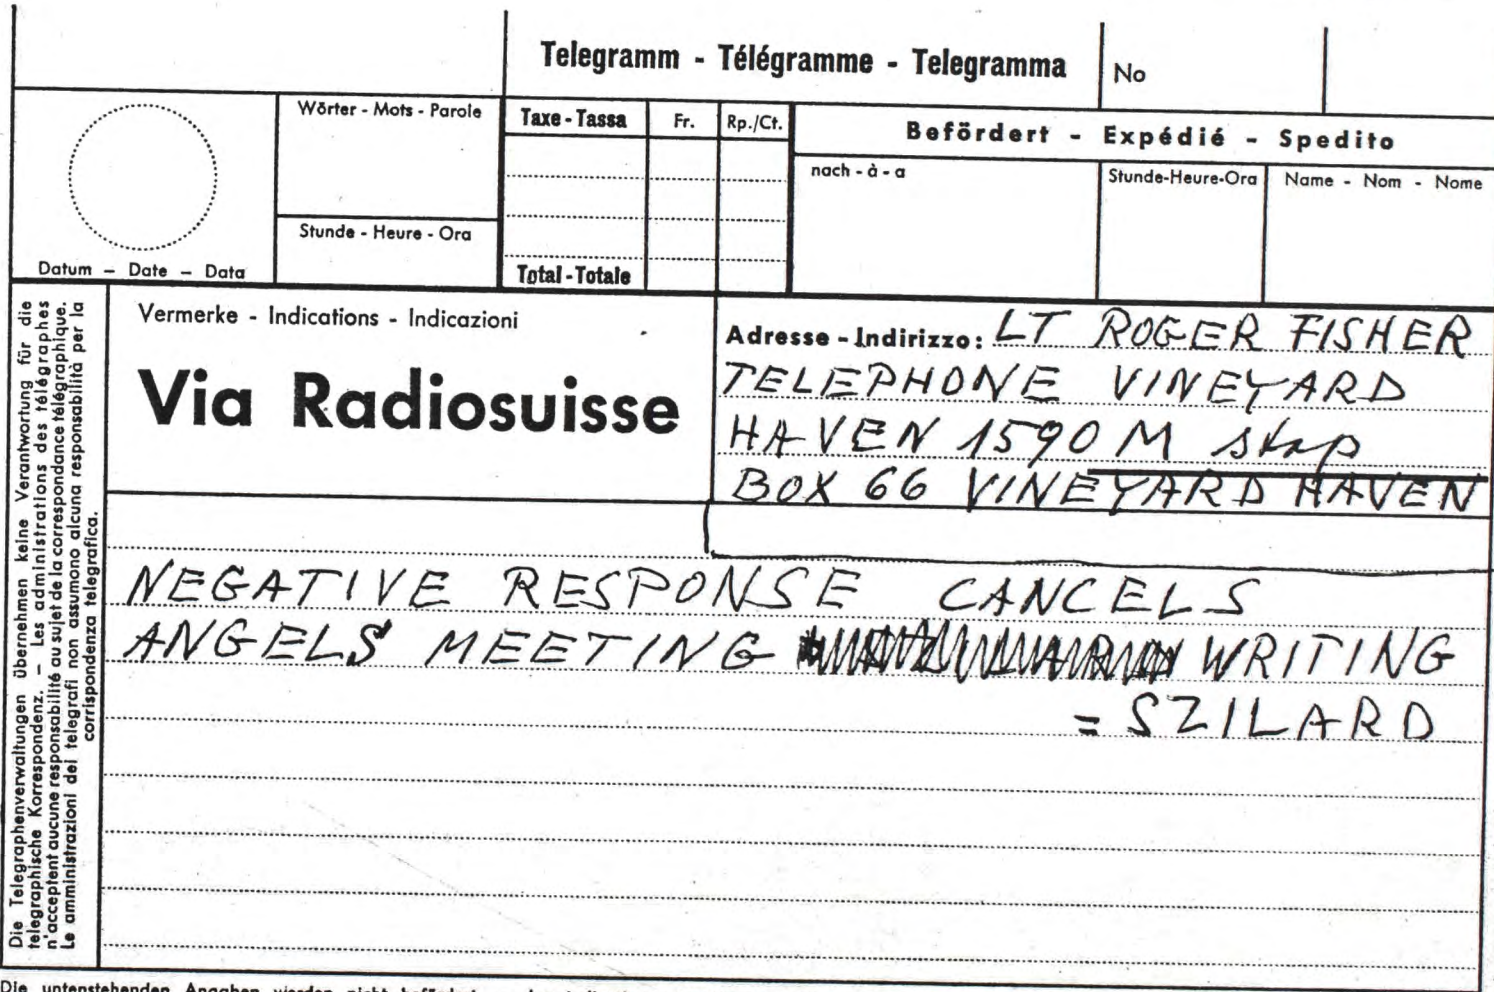 Telegramm - Télégramme - Telegramma
No
Wörter - Mots - Parole
Taxe - Tassa
Fr.
Rp./Ct.
Befördert - Expédié - Spedito
nach - à - a
Stunde-Heure-Ora
Name - Nom - Nome
Stunde - Heure - Ora
Datum – Date – Data
Total - Totale
Die Telegraphenverwaltungen übernehmen keine Verantwortung für die
telegraphische Korrespondenz. – Les administrations des télégraphes
n'acceptent aucune responsabilité au sujet de la correspondance télégraphique.
Le amministrazioni dei telegrafi non assumono alcuna responsabilità per la
corrispondenza telegrafica.
Vermerke - Indications - Indicazioni
Via Radiosuisse
Adresse - Indirizzo: LT ROGER FISHER
TELEPHONE VINEYARD
HAVEN 1590 M stop
BOX 66 VINEYARD HAVEN
NEGATIVE RESPONSE CANCELS
ANGELS' MEETING WRITING
= SZILARD
Die untenstehenden Angaben werden nicht